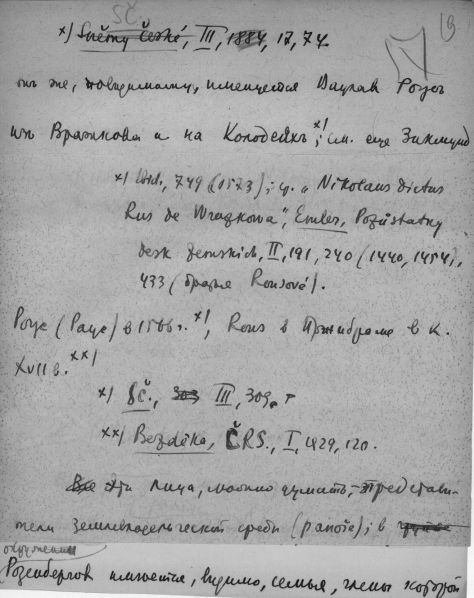 SČ
x) Sněmy České, III, 1884, 17, 74.
он же, повидимому, именуется Вацлав Роус
из Вразкова и на Колодеях x); см. еще Зикмунд
x) Ibid., 749 (1573); ср. „Nikolaus dictus
Rus de Wrazkowa", Emler, Pozůstatky
desk zemských, II, 191, 240 (1440, 1454),
433 (братья Rousové).
Роус (Раус) в 1566 г. x), Rous в Пржибраме в к.
XVII в. xx)
x) SČ., III, 309.
xx) Bezděka, ČRS., I, 1929, 120.
Эти лица, можно думать, – представи-
тели землевладельческой среды (panoše); в
окружении
Розенбергов имеется, видимо, семья, члены которой